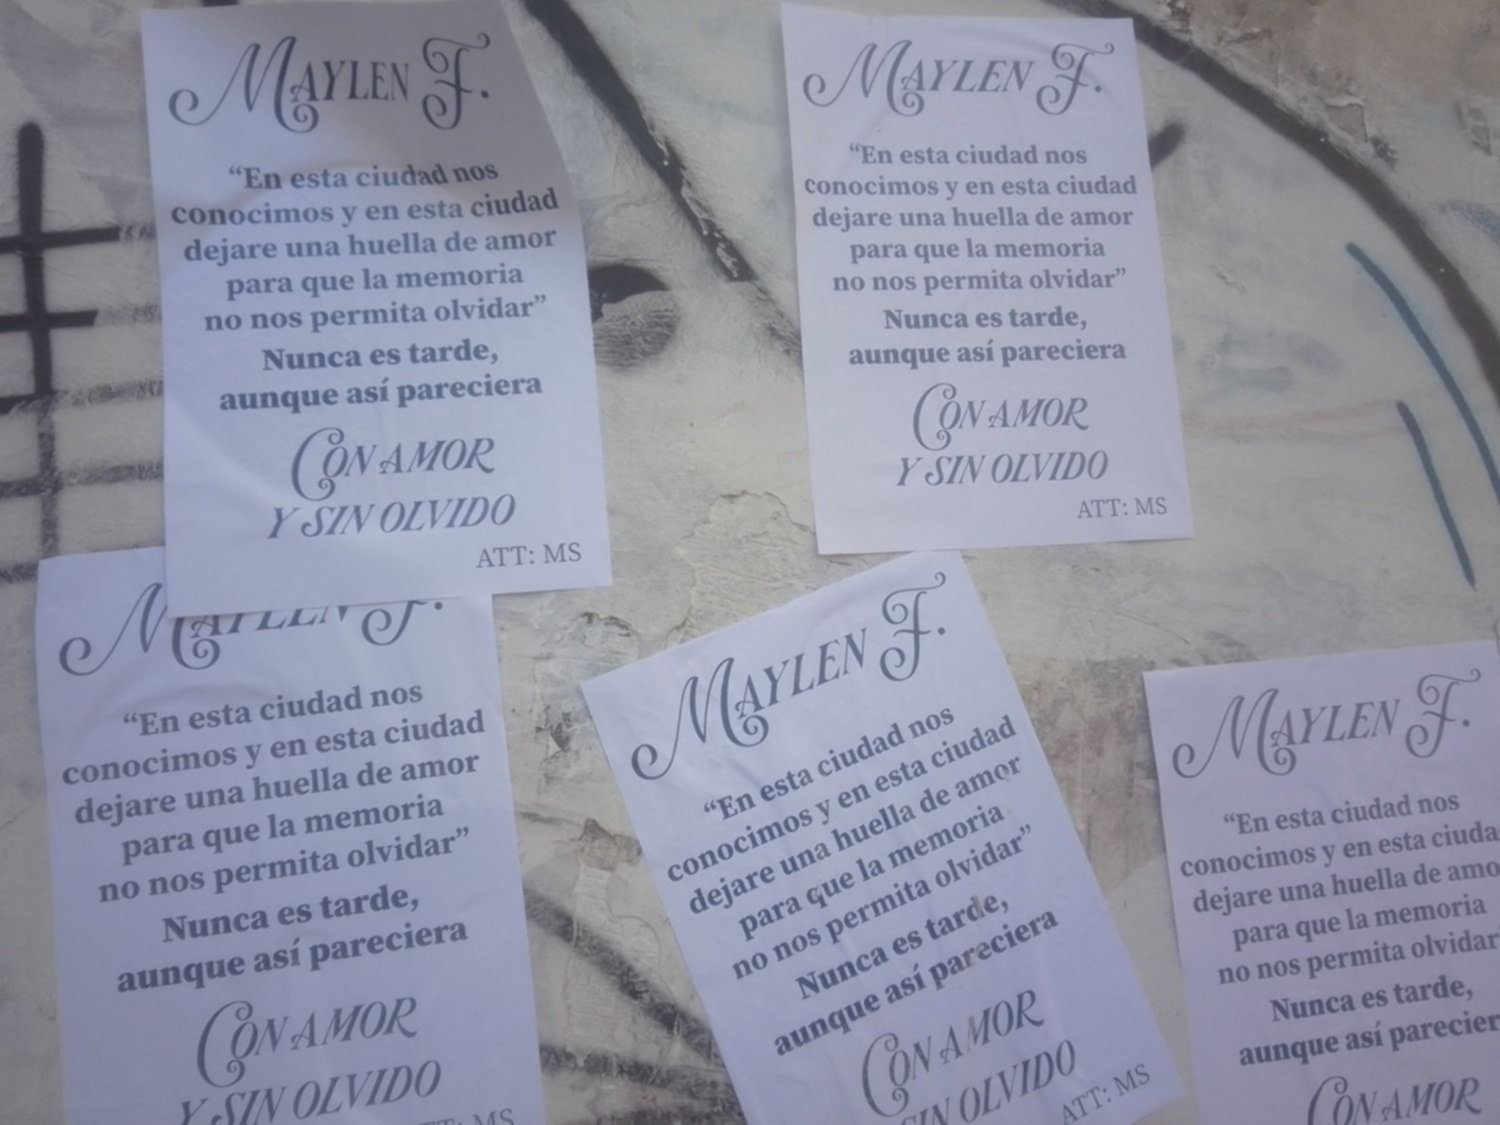 MAYLEN F.
“En esta ciudad nos
conocimos y en esta ciudad
dejare una huella de amor
para que la memoria
no nos permita olvidar”
Nunca es tarde,
aunque así pareciera
CON AMOR
Y SIN OLVIDO
ATT: MS
MAYLEN F.
“En esta ciudad nos
conocimos y en esta ciudad
dejare una huella de amor
para que la memoria
no nos permita olvidar”
Nunca es tarde,
aunque así pareciera
CON AMOR
Y SIN OLVIDO
ATT: MS
MAYLEN F.
“En esta ciudad nos
conocimos y en esta ciudad
dejare una huella de amor
para que la memoria
no nos permita olvidar”
Nunca es tarde,
aunque así pareciera
CON AMOR
Y SIN OLVIDO
ATT: MS
MAYLEN F.
“En esta ciudad nos
conocimos y en esta ciudad
dejare una huella de amor
para que la memoria
no nos permita olvidar”
Nunca es tarde,
aunque así pareciera
CON AMOR
SIN OLVIDO
ATT: MS
MAYLEN F.
“En esta ciudad nos
conocimos y en esta ciuda
dejare una huella de amo
para que la memoria
no nos permita olvidar
Nunca es tarde,
aunque así parecier
CON AMOR